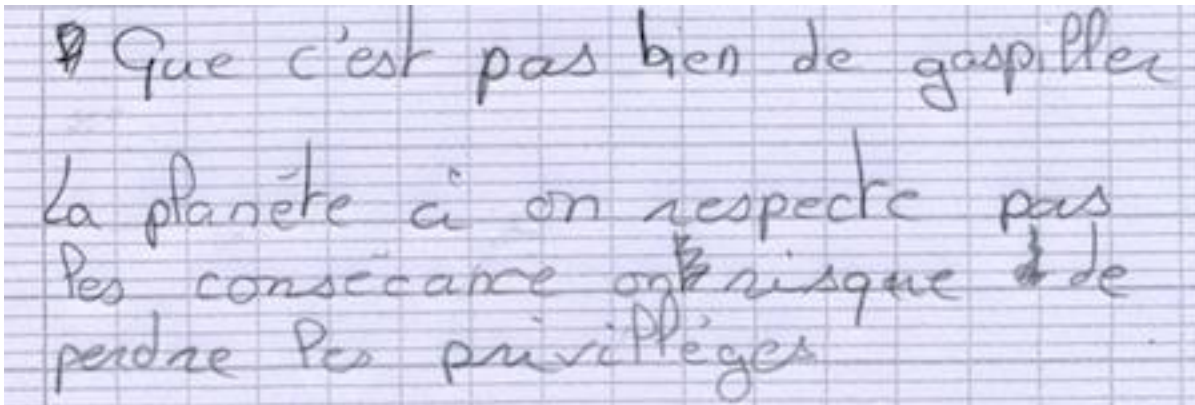 Que c'est pas bien de gaspiller
La planète ci on respecte pas
les consécance on risque de
perdre les privillèges